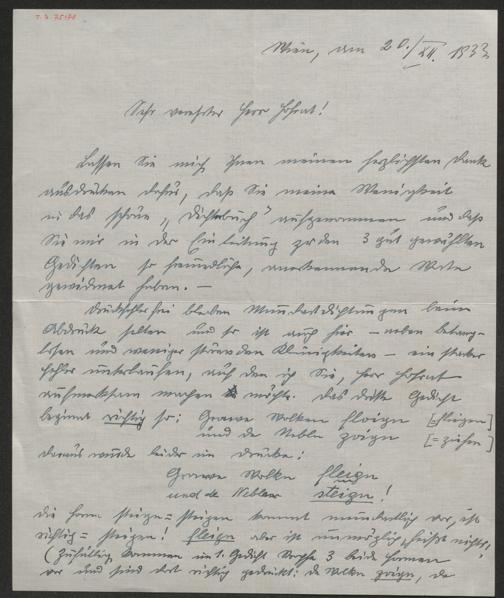 Wien, am 20./XII. 1933
Sehr verehrter Herr Hofrat!
Lassen Sie mich Ihnen meinen herzlichsten Dank
ausdrücken dafür, daß Sie meine Wenigkeit
in das schöne „Dichterbuch" aufgenommen und daß
Sie mir in der Einleitung zu den 3 gut gewählten
Gedichten so freundliche, anerkennende Worte
gewidmet haben. —
Druckfehlerfrei bleiben Mundartdichtungen beim
Abdruck selten und so ist auch hier — neben belang-
losen und weniger störenden Kleinigkeiten — ein starker
Fehler unterlaufen, auf den ich Sie, Herr Hofrat
aufmerksam machen möchte. Das dritte Gedicht
beginnt richtig so: Grawe Wolken floign [=fliegen]
und de Nebln zoign [=ziehen]
daraus wurde leider im Drucke:
Grawe Wolkn fleign
und de Nebln steign!
die Form steign = steigen kommt mundartlich vor, ist
richtig = steigen! fleign aber ist unmöglich, heißt nichts,
(Zufällig kommen im 1. Gedicht Strophe 3 beide Formen
vor und sind dort richtig gedruckt: de Wolkn zoign, de